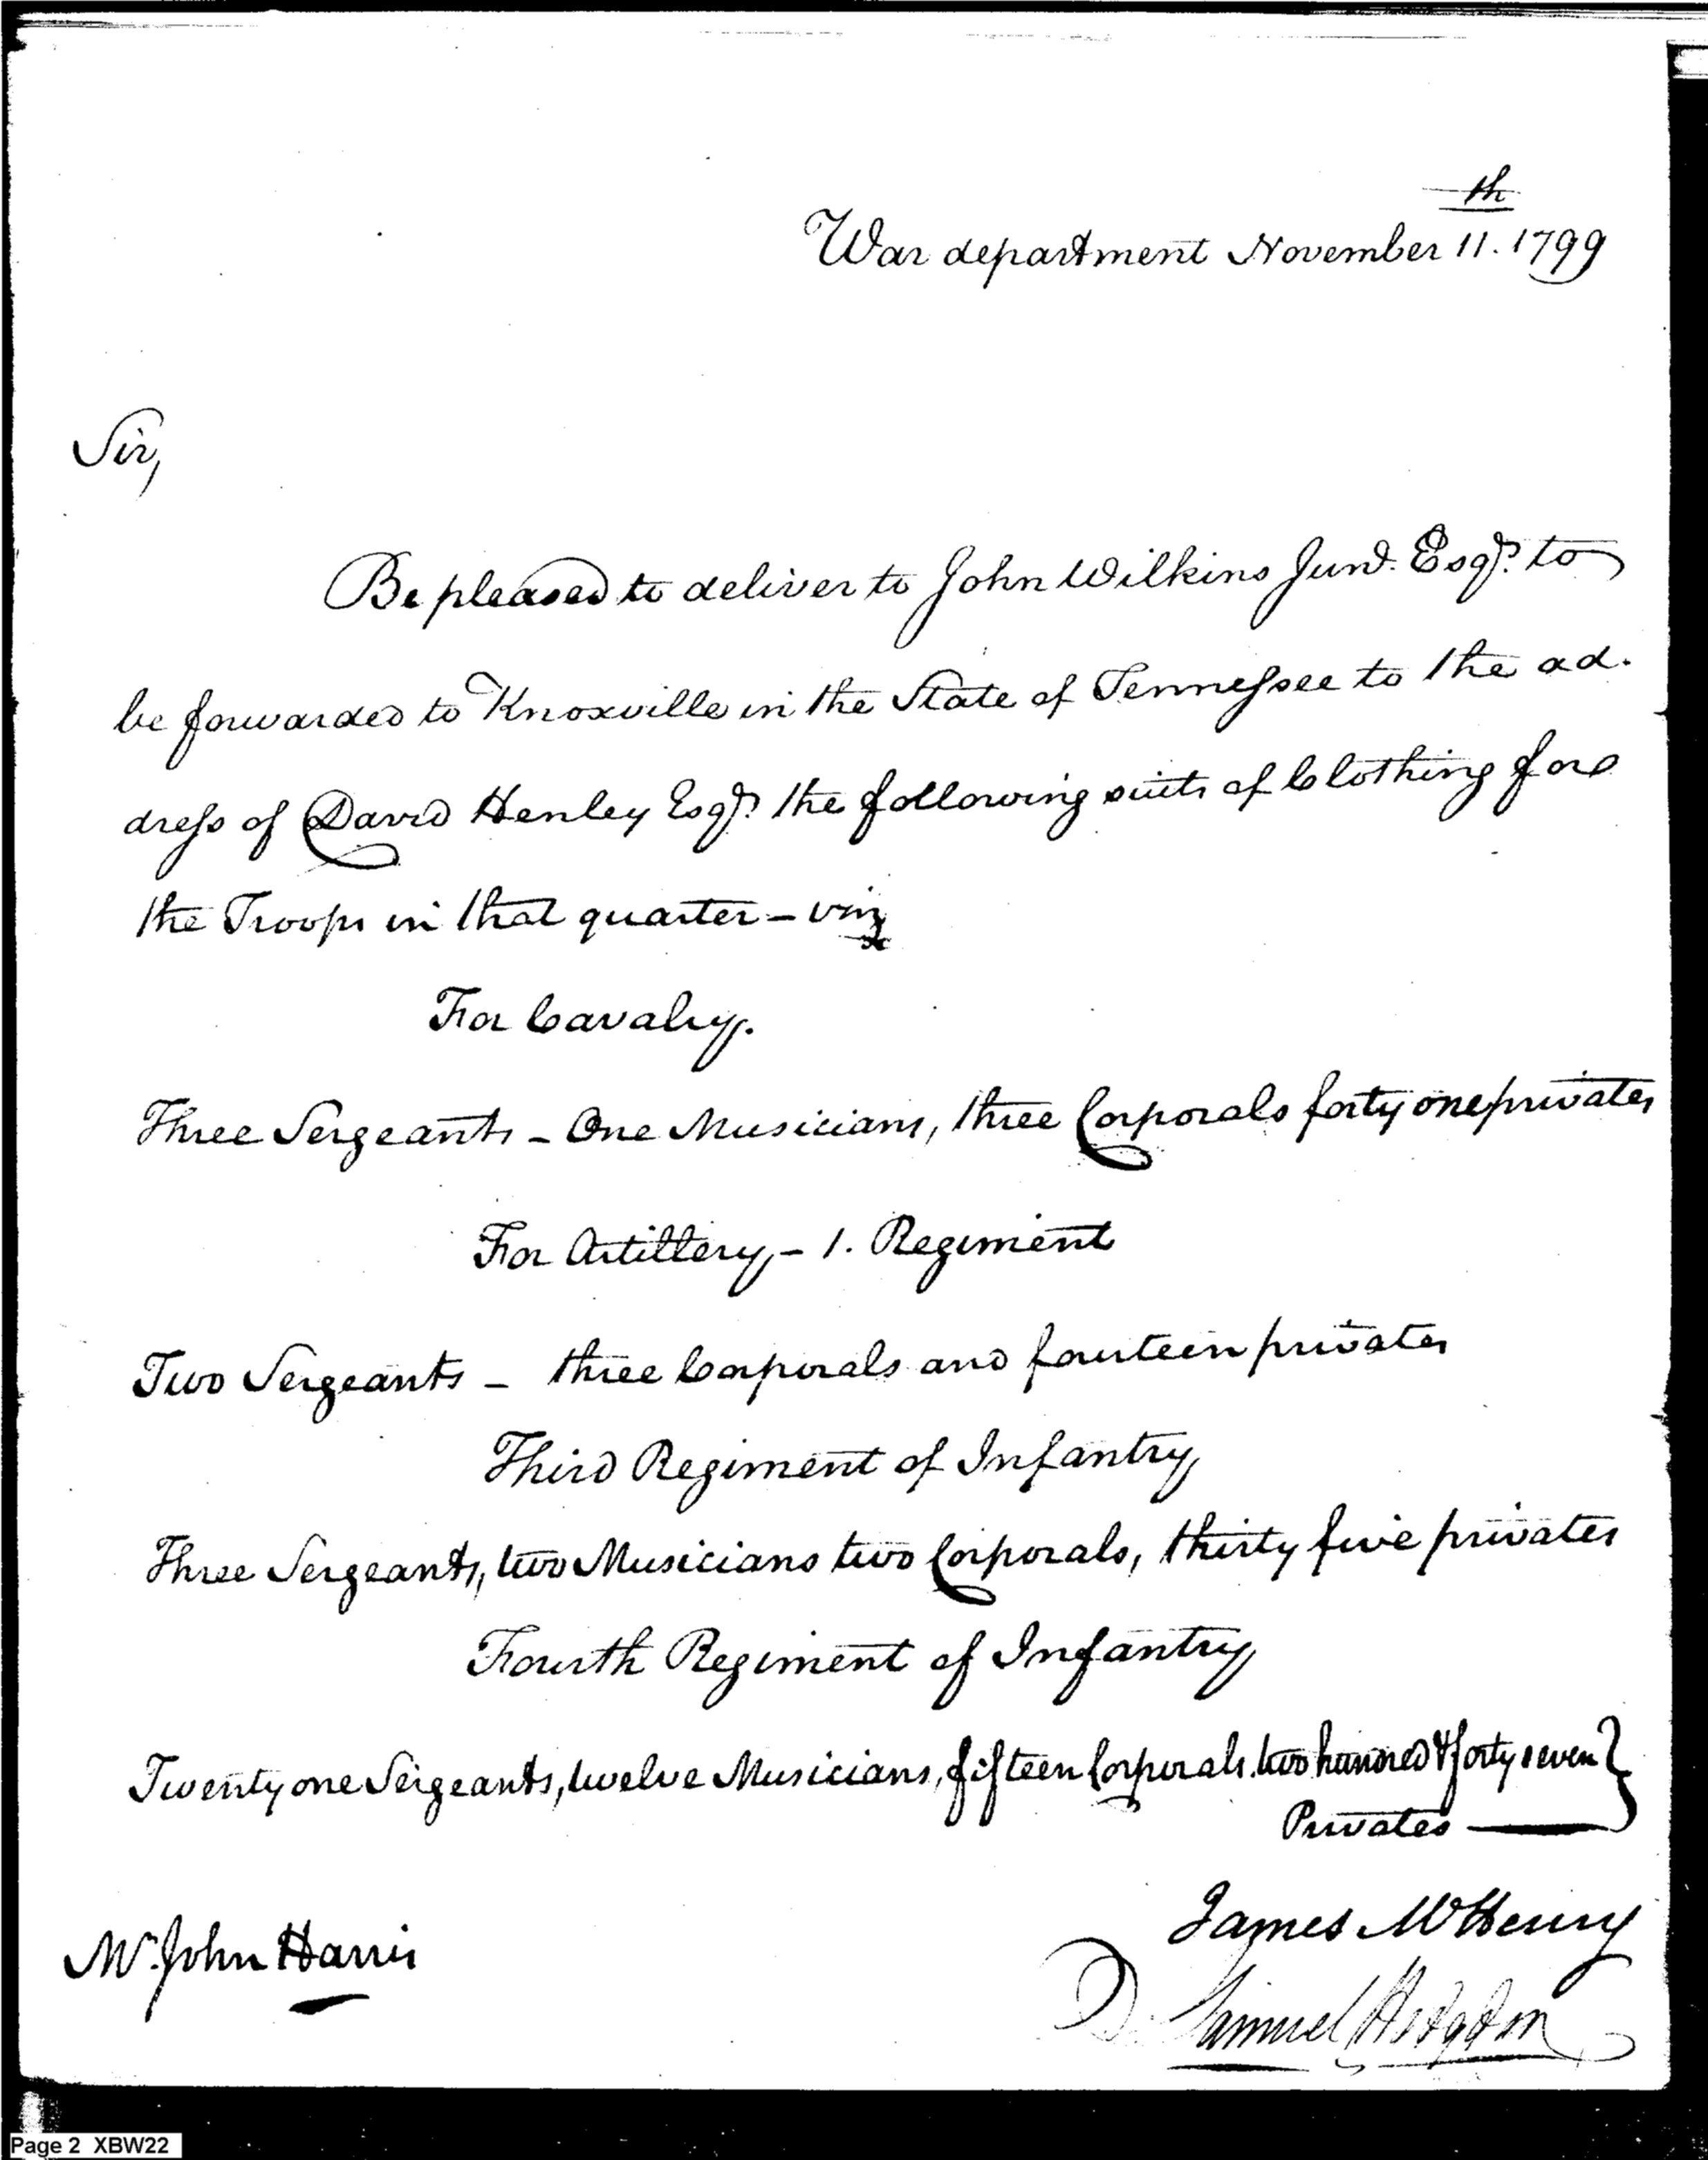 th
War department November 11. 1799
Sir,
Be pleased to deliver to John Wilkins Junr. Esqr. to
be forwarded to Knoxville in the State of Tennessee to the ad-
dress of David Henley Esqr. the following suits of Clothing for
the Troops in that quarter – viz
For Cavalry.
Three Sergeants – One Musicians, three Corporals forty one privates
For Artillery – 1. Regiment
Two Sergeants – three Corporals and fourteen privates
Third Regiment of Infantry
Three Sergeants, two Musicians two Corporals, thirty five privates
Fourth Regiment of Infantry
Twenty one Sergeants, twelve Musicians, fifteen Corporals. two hundred & forty seven
Privates
James McHenry
Mr. John Harris
Samuel Hodgdon
Page 2 XBW22